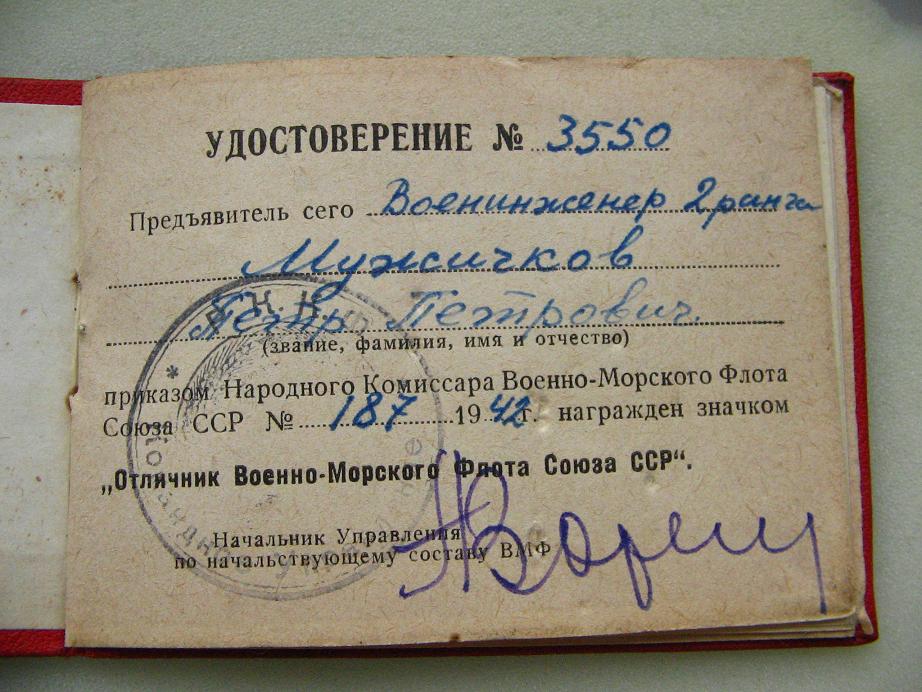 УДОСТОВЕРЕНИЕ № 3550
Предъявитель сего Военинженер 2 ранга
Мужичков
Петр Петрович.
(звание, фамилия, имя и отчество)
приказом Народного Комиссара Военно-Морского Флота
Союза ССР № 187 1942 г. награжден значком
„Отличник Военно-Морского Флота Союза ССР“.
Начальник Управления
по начальствующему составу ВМФ